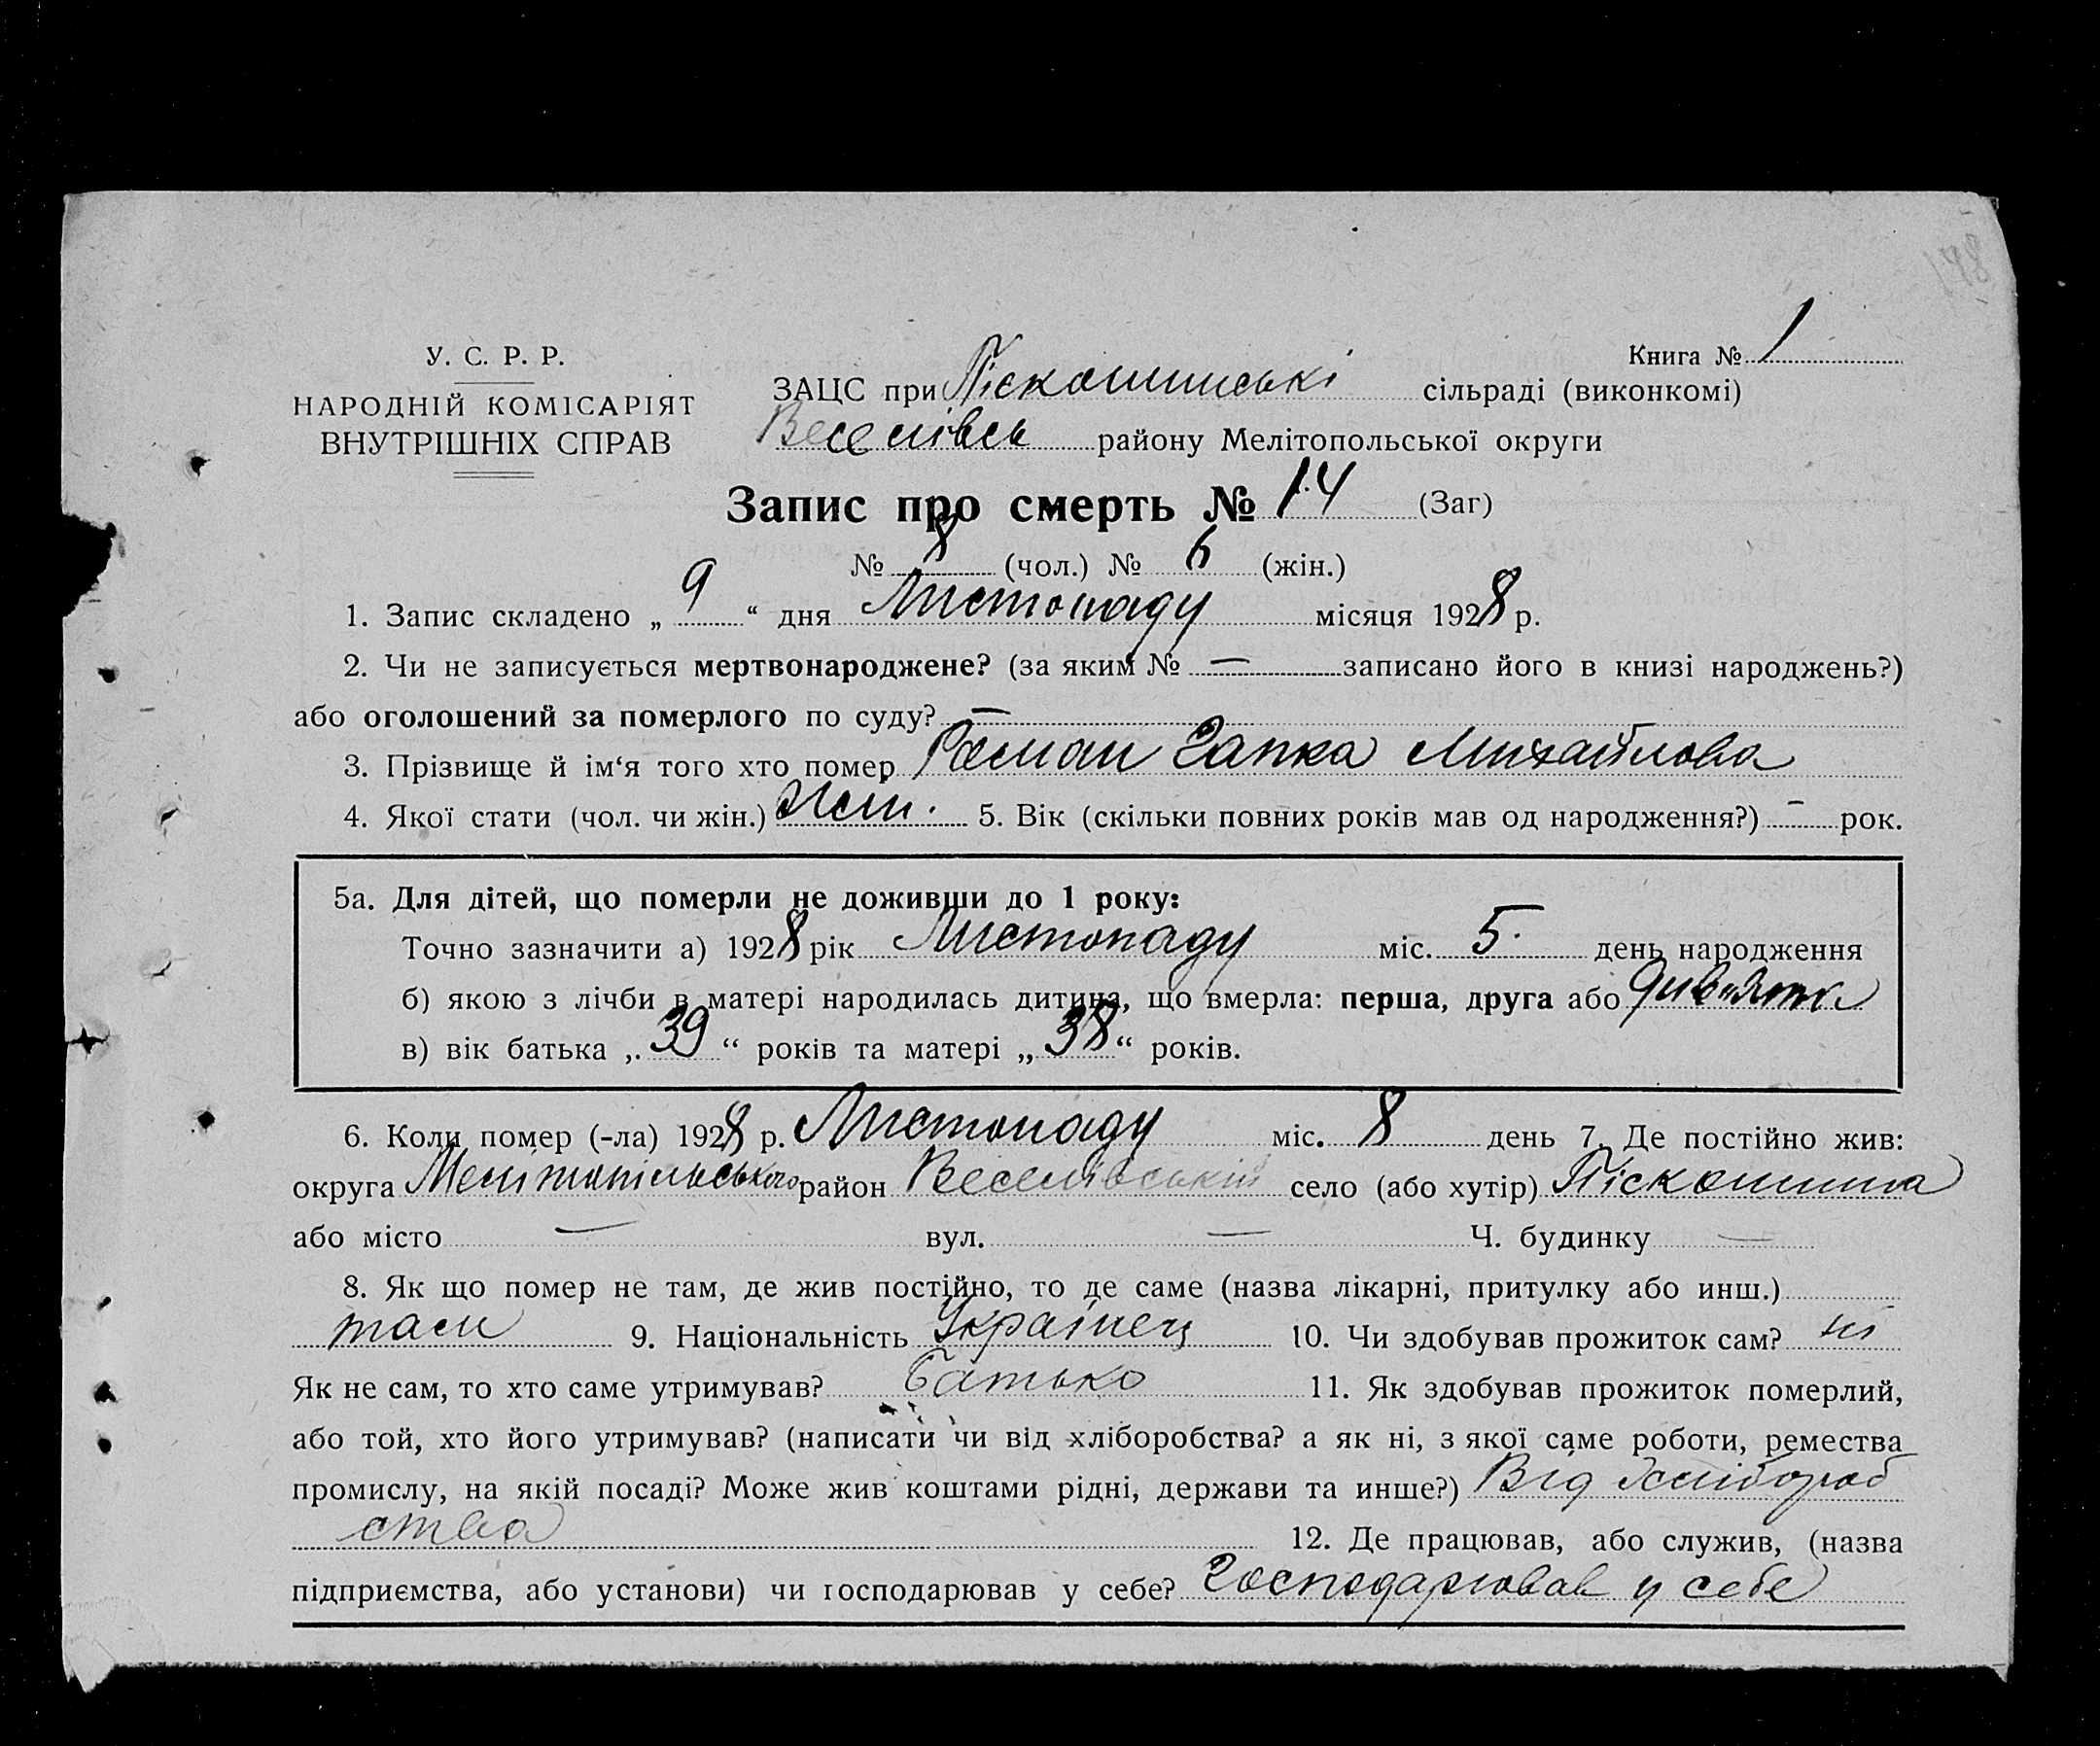 У. С. Р. Р.
НАРОДНІЙ КОМІСАРІЯТ
ВНУТРІШНІХ СПРАВ
Книга № 1
ЗАЦС при Піскошинські сільраді (виконкомі)
Веселівськ району Мелітопольської округи
Запис про смерть № 14 (Заг)
№ 8 (чол.) № 6 (жін.)
1. Запис складено „ 9 “ дня Листопаду місяця 1928 р.
2. Чи не записується мертвонароджене? (за яким № — записано його в книзі народжень?)
або оголошений за померлого по суду? —
3. Прізвище й ім‘я того хто помер Гапка Михайлова
4. Якої стати (чол. чи жін.) Жін. 5. Вік (скільки повних років мав од народження?) — рок.
5а. Для дітей, що померли не доживши до 1 року:
Точно зазначити а) 1928 рік Листопаду міс. 5 день народження
б) якою з лічби в матері народилась дитина, що вмерла: перша, друга або дивьята
в) вік батька „ 39 “ років та матері „ 38 “ років.
6. Коли помер (-ла) 1928 р. Листопаду міс. 8 день 7. Де постійно жив:
округа Мелітопільського район Веселівський село (або хутір) Піскошина
або місто — вул. — Ч. будинку —
8. Як що помер не там, де жив постійно, то де саме (назва лікарні, притулку або инш.)
там 9. Національність Українец 10. Чи здобував прожиток сам? ні
Як не сам, то хто саме утримував? Батько 11. Як здобував прожиток померлий,
або той, хто його утримував? (написати чи від хліборобства? а як ні, з якої саме роботи, ремества
промислу, на якій посаді? Може жив коштами рідні, держави та инше?) Від хлібороб
ства 12. Де працював, або служив, (назва
підприємства, або установи) чи господарював у себе? Господарював у себе